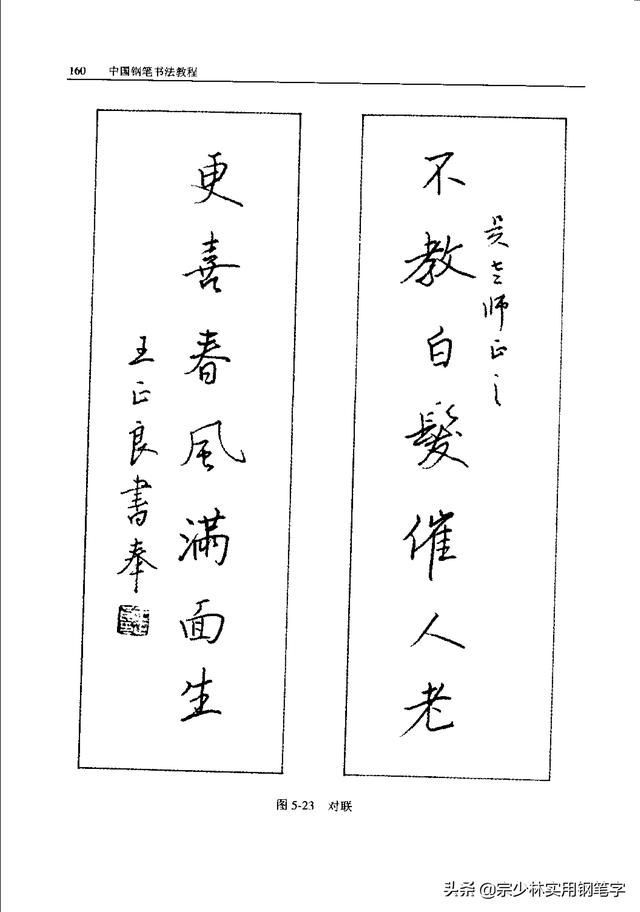 160 中国钢笔书法教程
不教白髮催人老
吴老师正之
更喜春風满面生
王正良書奉
图 5-23 对联
头条 @宗少林实用钢笔字